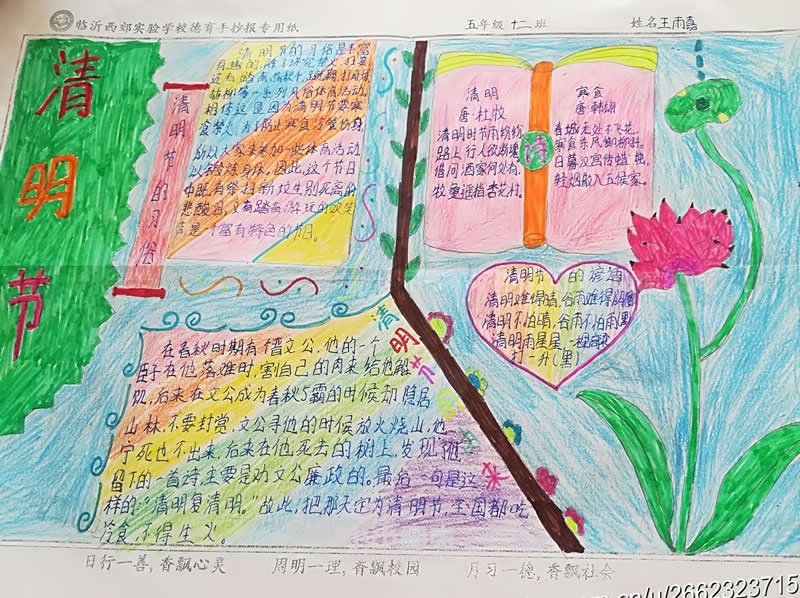 临沂西郊实验学校德育手抄报专用纸
五年级 十二班
姓名王雨嘉
清明节
清明节的习俗
清明节的习俗是丰富
有趣的,除了讲究禁火、扫墓
还有踏青、荡秋千、蹴鞠、打马球
插柳等一系列风俗体育活动。
相传这是因为清明节要寒
食禁火,为了防止寒食冷餐伤身,
所以大家来参加一些体育活动
以锻炼身体。因此,这个节日
中既有祭扫新坟生别死离的
悲酸泪,又有踏青游玩的欢笑
声是一个富有特色的节日。
清明
唐·杜牧
清明时节雨纷纷
路上行人欲断魂
借问酒家何处有,
牧童遥指杏花村。
诗
寒食
唐·韩翃
春城无处不飞花,
寒食东风御柳斜。
日暮汉宫传蜡烛,
轻烟散入五侯家。
清明节的谚语
清明难得晴,谷雨难得阴
清明不怕晴,谷雨不怕雨(黑)
清明雨星星,一棵高粱
打一升(黑)
清明节的由来
在春秋时期有个晋文公,他的一个
臣子在他落难时,割自己的肉来给他解
饥,后来在文公成为春秋5霸的时候却隐居
山林,不要封赏,文公寻他的时候放火烧山,他
宁死也不出来,后来在他死去的树上,发现了他
留下的一首诗,主要是劝文公廉政的。最后一句是这
样的:“清明复清明。”故此,把那天定为清明节,全国都吃
冷食,不得生火。
日行一善,香飘心灵
周明一理,香飘校园
月习一德,香飘社会
u/2662323715